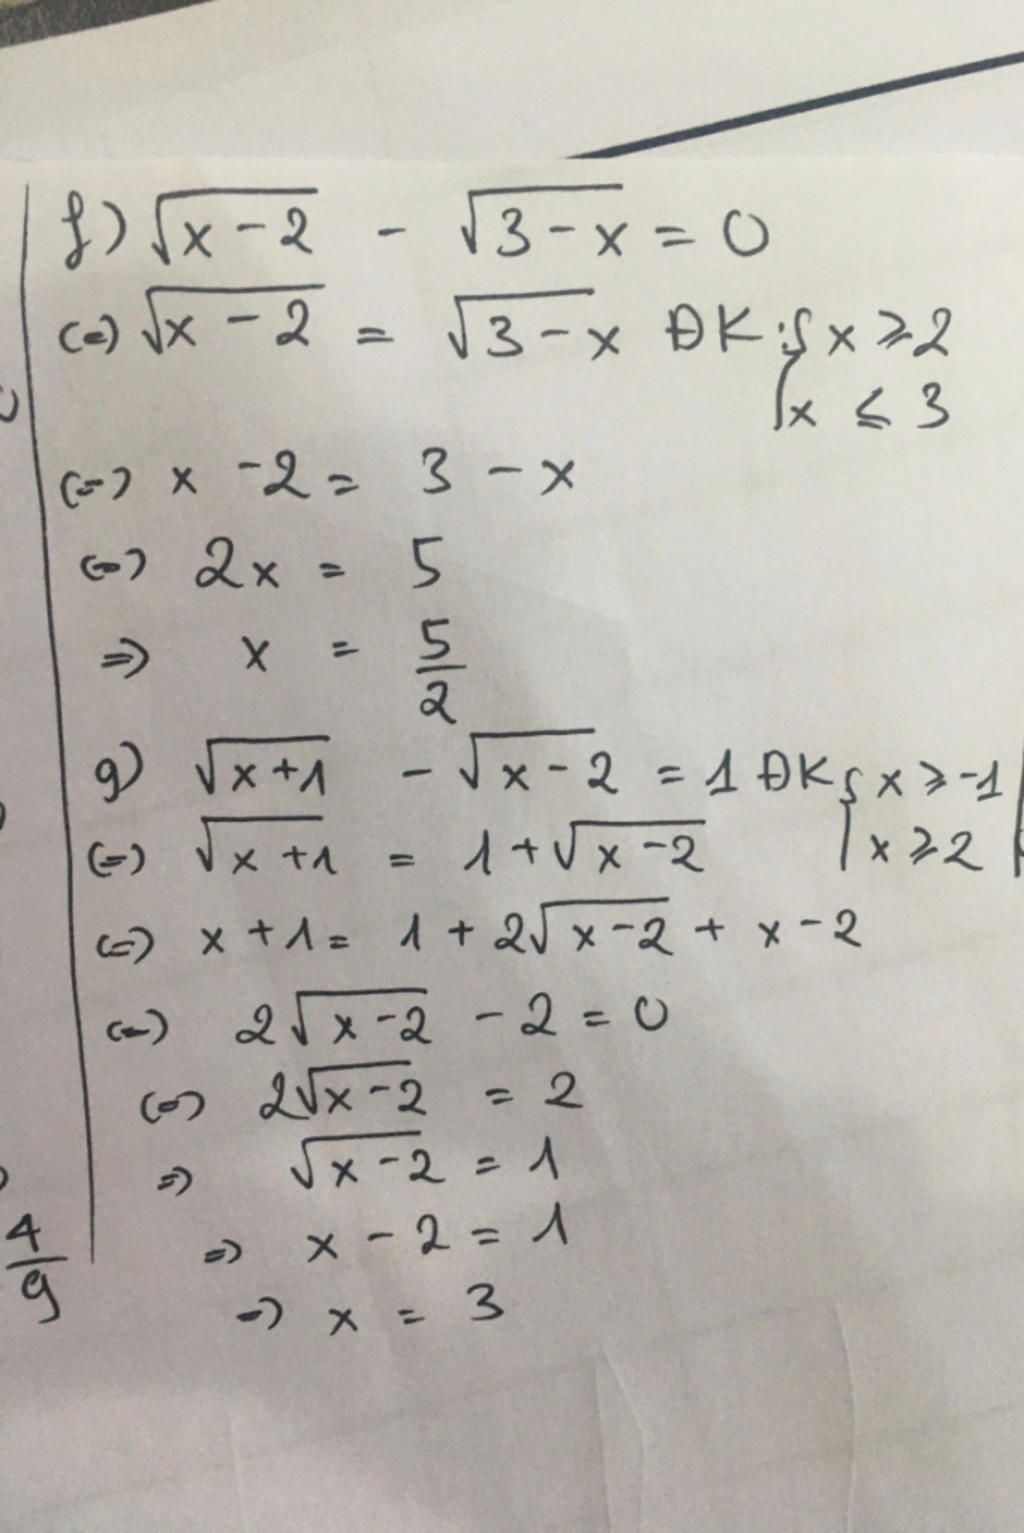 f) √x-2 - √3-x = 0
(=) √x-2 = √3-x ĐK: { x ≥ 2
x ≤ 3
(=) x - 2 = 3 - x
(=) 2x = 5
=> x = 5/2
g) √x+1 - √x-2 = 1 ĐK { x ≥ -1
x ≥ 2
(=) √x+1 = 1 + √x-2
(=) x + 1 = 1 + 2√x-2 + x - 2
(=) 2√x-2 - 2 = 0
(=) 2√x-2 = 2
=> √x-2 = 1
=> x - 2 = 1
=> x = 3
4/9